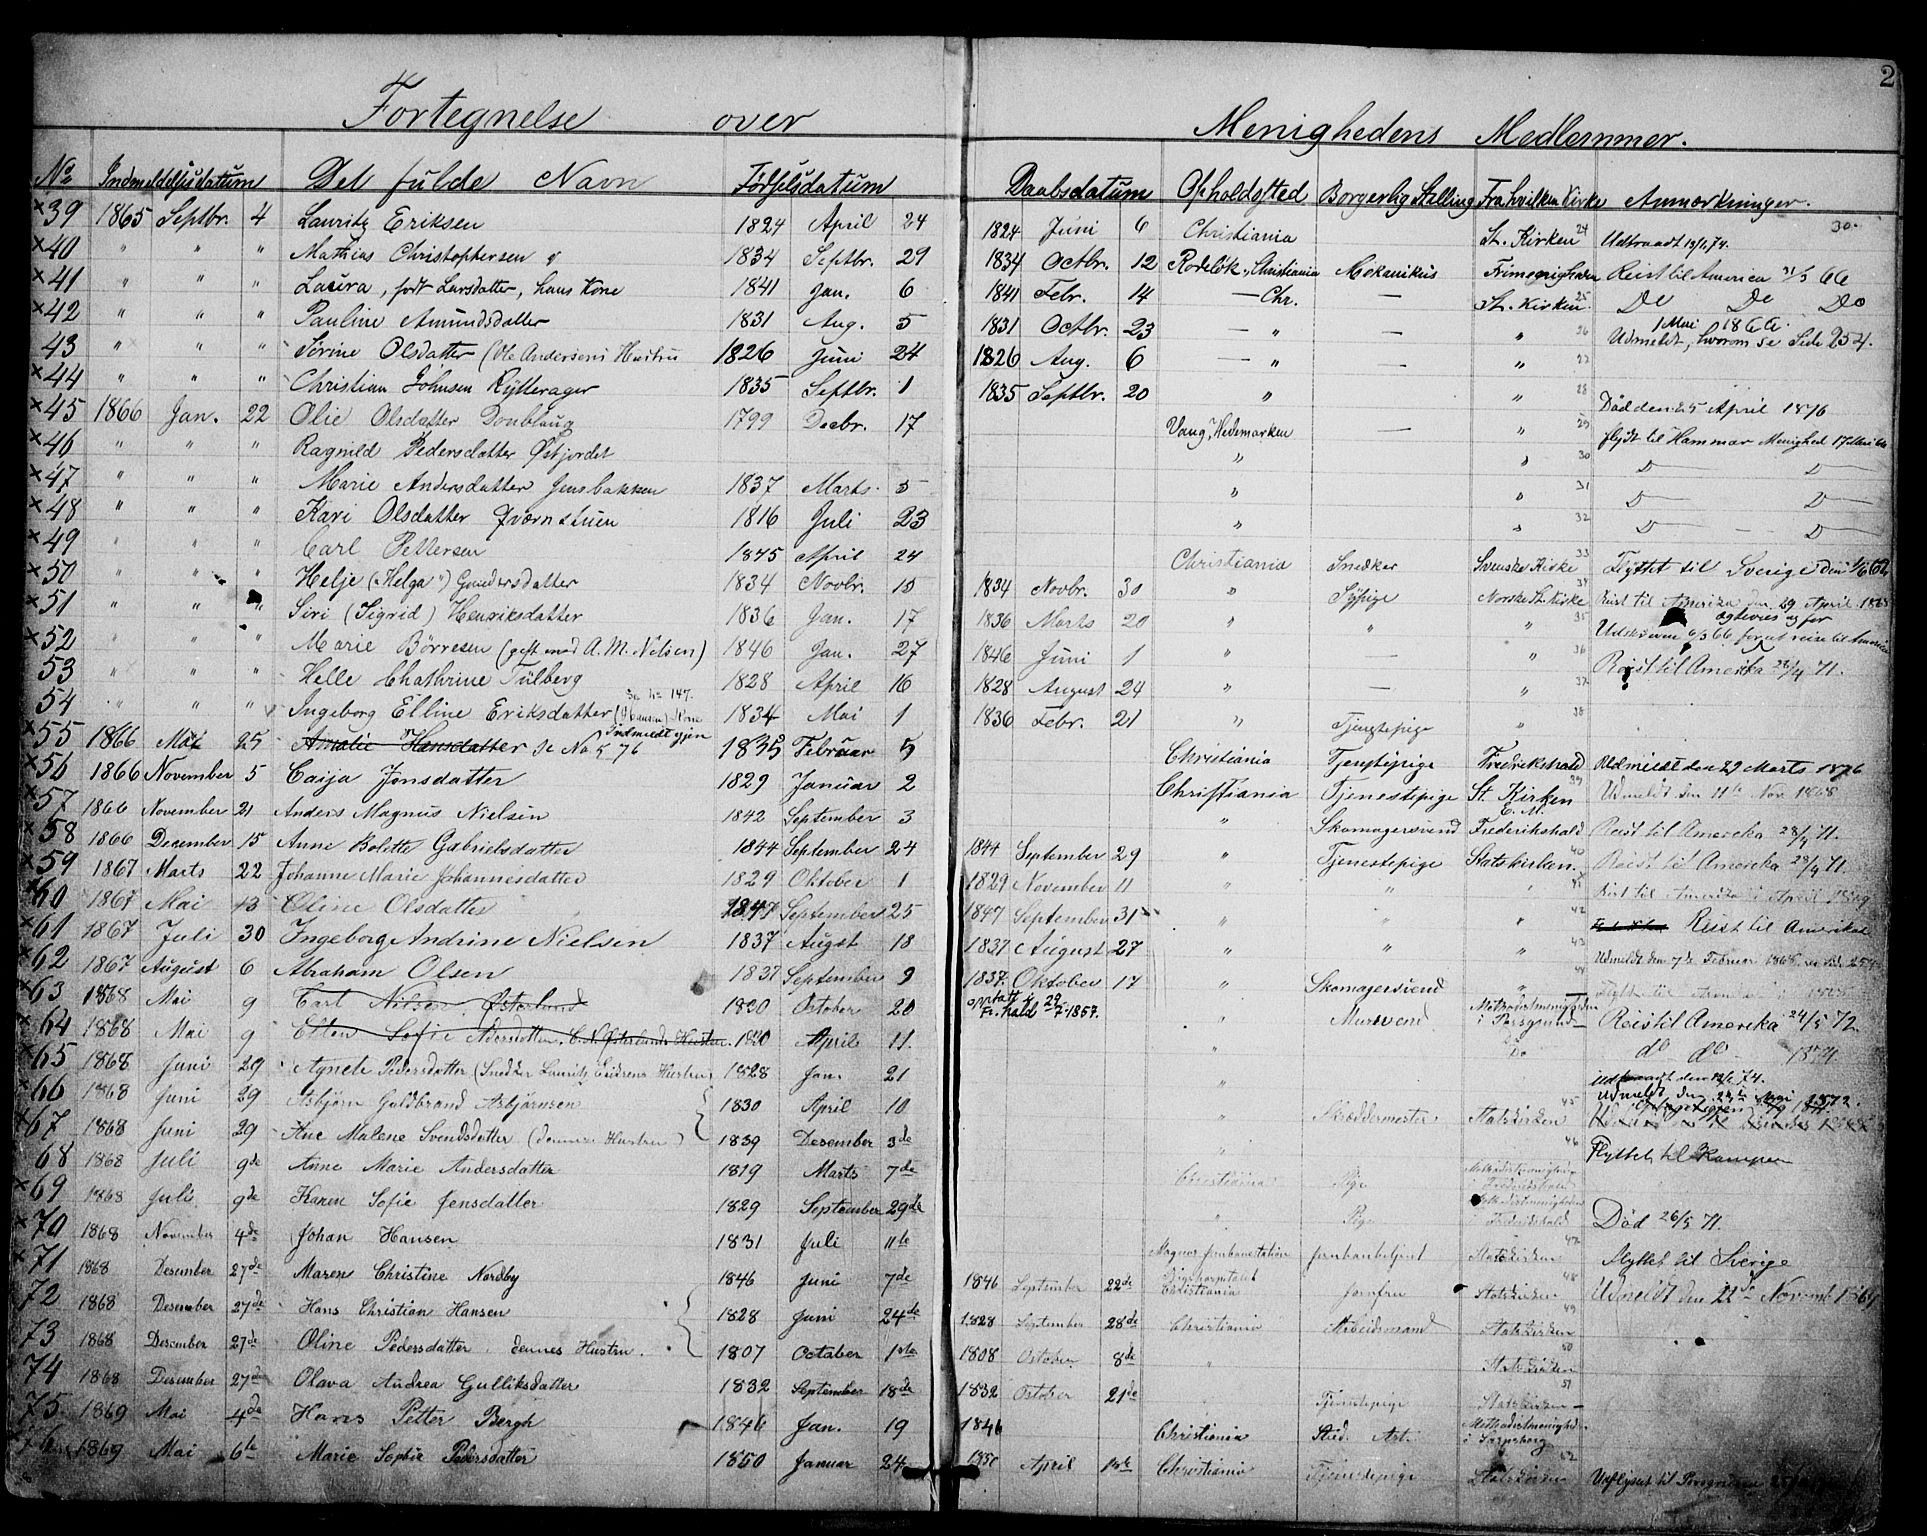 2
Fortegnelse over Menighedens Medlemmer.
No Indmeldelsesdatum Det fulde Navn Fødselsdatum Daabsdatum Opholdssted Borgerlig Stilling Fra hvilken Kirke Anmærkninger.
×39 1865 Septbr. 4 Lauritz Eriksen 1824 April 24 1824 Juni 6 Christiania St. Kirken 24 Udtraadt 13/1 74. 30.
×40 " " " Mathias Christophersen 1834 Septbr. 29 1834 Octbr. 12 Rodeløk, Christiania Mekanikus Frimenigheden Reist til America 31/3 66
×41 " " " Laura, født Larsdatter, hans Kone 1841 Jan. 6 1841 Febr. 14 — Chr. — St. Kirken 25 Do Do Do
×42 " " " Pauline Amundsdatter 1831 Aug. 5 1831 Octbr. 23 — " — " 26 1 Mai 1866.
43 " " " Sørine Olsdatter (Ole Andersens Hustru 1826 Juni 24 1826 Aug. 6 — " " 27 Udmeldt, hvorom se Side 254.
×44 " " " Christian Johnsen Rytterager 1835 Septbr. 1 1835 Septbr. 20 " " 28
×45 1866 Jan. 22 Olie Olsdatter Donblaug 1799 Decbr. 17 Vang, Hedemarken — " 29 Død den 25 April 1876
×46 " " " Ragnild Pedersdatter Østjordet " " 30 flydt til Hammar Menighed 17
×47 " " " Marie Andersdatter Jensbakken 1837 Marts 5 " " 31 D— D—
×48 " " " Kari Olsdatter Qværnstuen 1816 Juli 23 " " 32 D— D—
×49 " " " Carl Pettersen 1845 April 24 Christiania Snedker Svenske Kirke 33 Flyttet til Sverige den
×50 " " " Helje ("Helga") Gundersdatter 1834 Novbr. 15 1834 Novbr. 30 " Sypige Norske St. Kirke 34 Reist til Amerika den 29 April 1868
×51 " " " Siri (Sigrid) Henriksdatter 1836 Jan. 17 1836 Marts 20 " " " 35
×52 " Marie Börresen (gift med A. M. Nilsen) 1846 Jan. 27 1846 Juni 1 " — " 36 Reist til Amerika 28/4 71.
53 " " " Helle Chathrine Tulberg 1828 April 16 1828 August 24 " — " 37
54 " " " Ingeborg Elline Eriksdatter (Hansen) Kone se No 147. 1834 Mai 1 1836 Febr. 21 " Tjenstepige " 38
×55 1866 Mai 25 Amalie Hansdatter se No 576 Indmeldt igjen 1835 Februar 5 Christiania Tjenstepige Fredrikshald Udmeldt den 29 Marts 1876
×56 1866 November 5 Caija Jonsdatter 1829 Januar 2 Christiania Tjenestepige St. Kirken 39 Udmeldt den 11te Nov 1868
×57 1866 November 21 Anders Magnus Nielsen 1842 September 3 " Skomagersvend E. M. Frederikshald Reist til Amerika 28/4 71.
×58 1866 December 15 Anne Bolette Gabrielsdatter 1844 September 24 1844 September 29 " Tjenestepige Statskirken 40 Reist til Amerika 28/4 71.
×59 1867 Marts 22 Johanne Marie Johannesdatter 1829 Oktober 1 1829 November 11 " " " 41 Reist til Amerika i April 1869
×60 1867 Mai 13 Oline Olsdatter 1847 September 25 1847 September 31 " " " 42 Reist til Amerika
×61 1867 Juli 30 Ingeborg Andrine Nielsen 1837 Augst 18 1837 August 27 " " " 43 Udmeldt den 7de Februar 1868
×62 1867 August 6 Abraham Olsen 1837 September 9 1837. Oktober 17 " Skomagersvend " 44
×63 1868 Mai 9 Carl Nilsen Østerlund 1820 October 20 optatt i Fr.hald 29/7.1857. " Mursvend Methodistmenigheden i Porsgrund Reist til Amerika 24/5 72.
×64 1868 Mai 9 Ellen Sofie Adersdatter. C. N. Østerlunds Hustru. 1820 April 11. " Do do do 1874.
×65 1868 Juni 29 Agnete Pedersdatter (Snedker Lauritz Eriksens Hustru) 1828 Jan. 21 " udtraadt den 13/1 74.
×66 1868 Juni 29 Asbjørn Guldbrand Asbjørnsen 1830 April 10 " Skræddermester Statskirken 45 Udmeldt den 22de Mai 1872.
×67 1868 Juni 29 Ane Malene Svendsdatter (dennes Hustru) 1839 Desember 3de " 46 Flyttet til Kampen
68 1868 Juli 9de Anne Marie Andersdatter 1819 Marts 7de Christiania Pige Methodistmenigheden i Frederikshald
×69 1868 Juli 9de Karen Sofie Jensdatter 1829 September 29de " Pige Methodistmenigheden i Fredrikshald Død 26/5 71.
×70 1868 November 4de Johan Hansen 1831 Juli 11te Magnor Jernbanestation Jernbanebetjent Statskirken 47 Flyttet til Sverige
×71 1868 Desember 27de Maren Christine Nordby 1846 Juni 7de 1846 September 22de Bigshospitalet Christiania Jomfru Statskirken 48 Udmeldt den 22de Novemb 1869
72 1868 Desember 27de Hans Christian Hansen 1828 Juni 24de 1828 September 28de Christiania Arbeidsmand Statskirken 49
73 1868 Desember 27de Oline Pedersdatter. dennes Hustru. 1807 October 1ste 1808 October 8de " Statskirken 50
74 1868 Desember 27de Olava Andrea Gulliksdatter 1832 September 18de 1832 October 21de Tjenestepige Statskirken 51
75 1869 Mai 4de Hans Petter Bergh 1846 Jan. 19 1846 Christiania Stud. Art. Methodistmenigheden i Sarpsborg
76 1869 Mai 6te Marie Sophie Pedersdatter 1850 Januar 24 1850 April 1ste Christiania Tjenestepige Statskirken 52 Udflyttet til Porsgrund